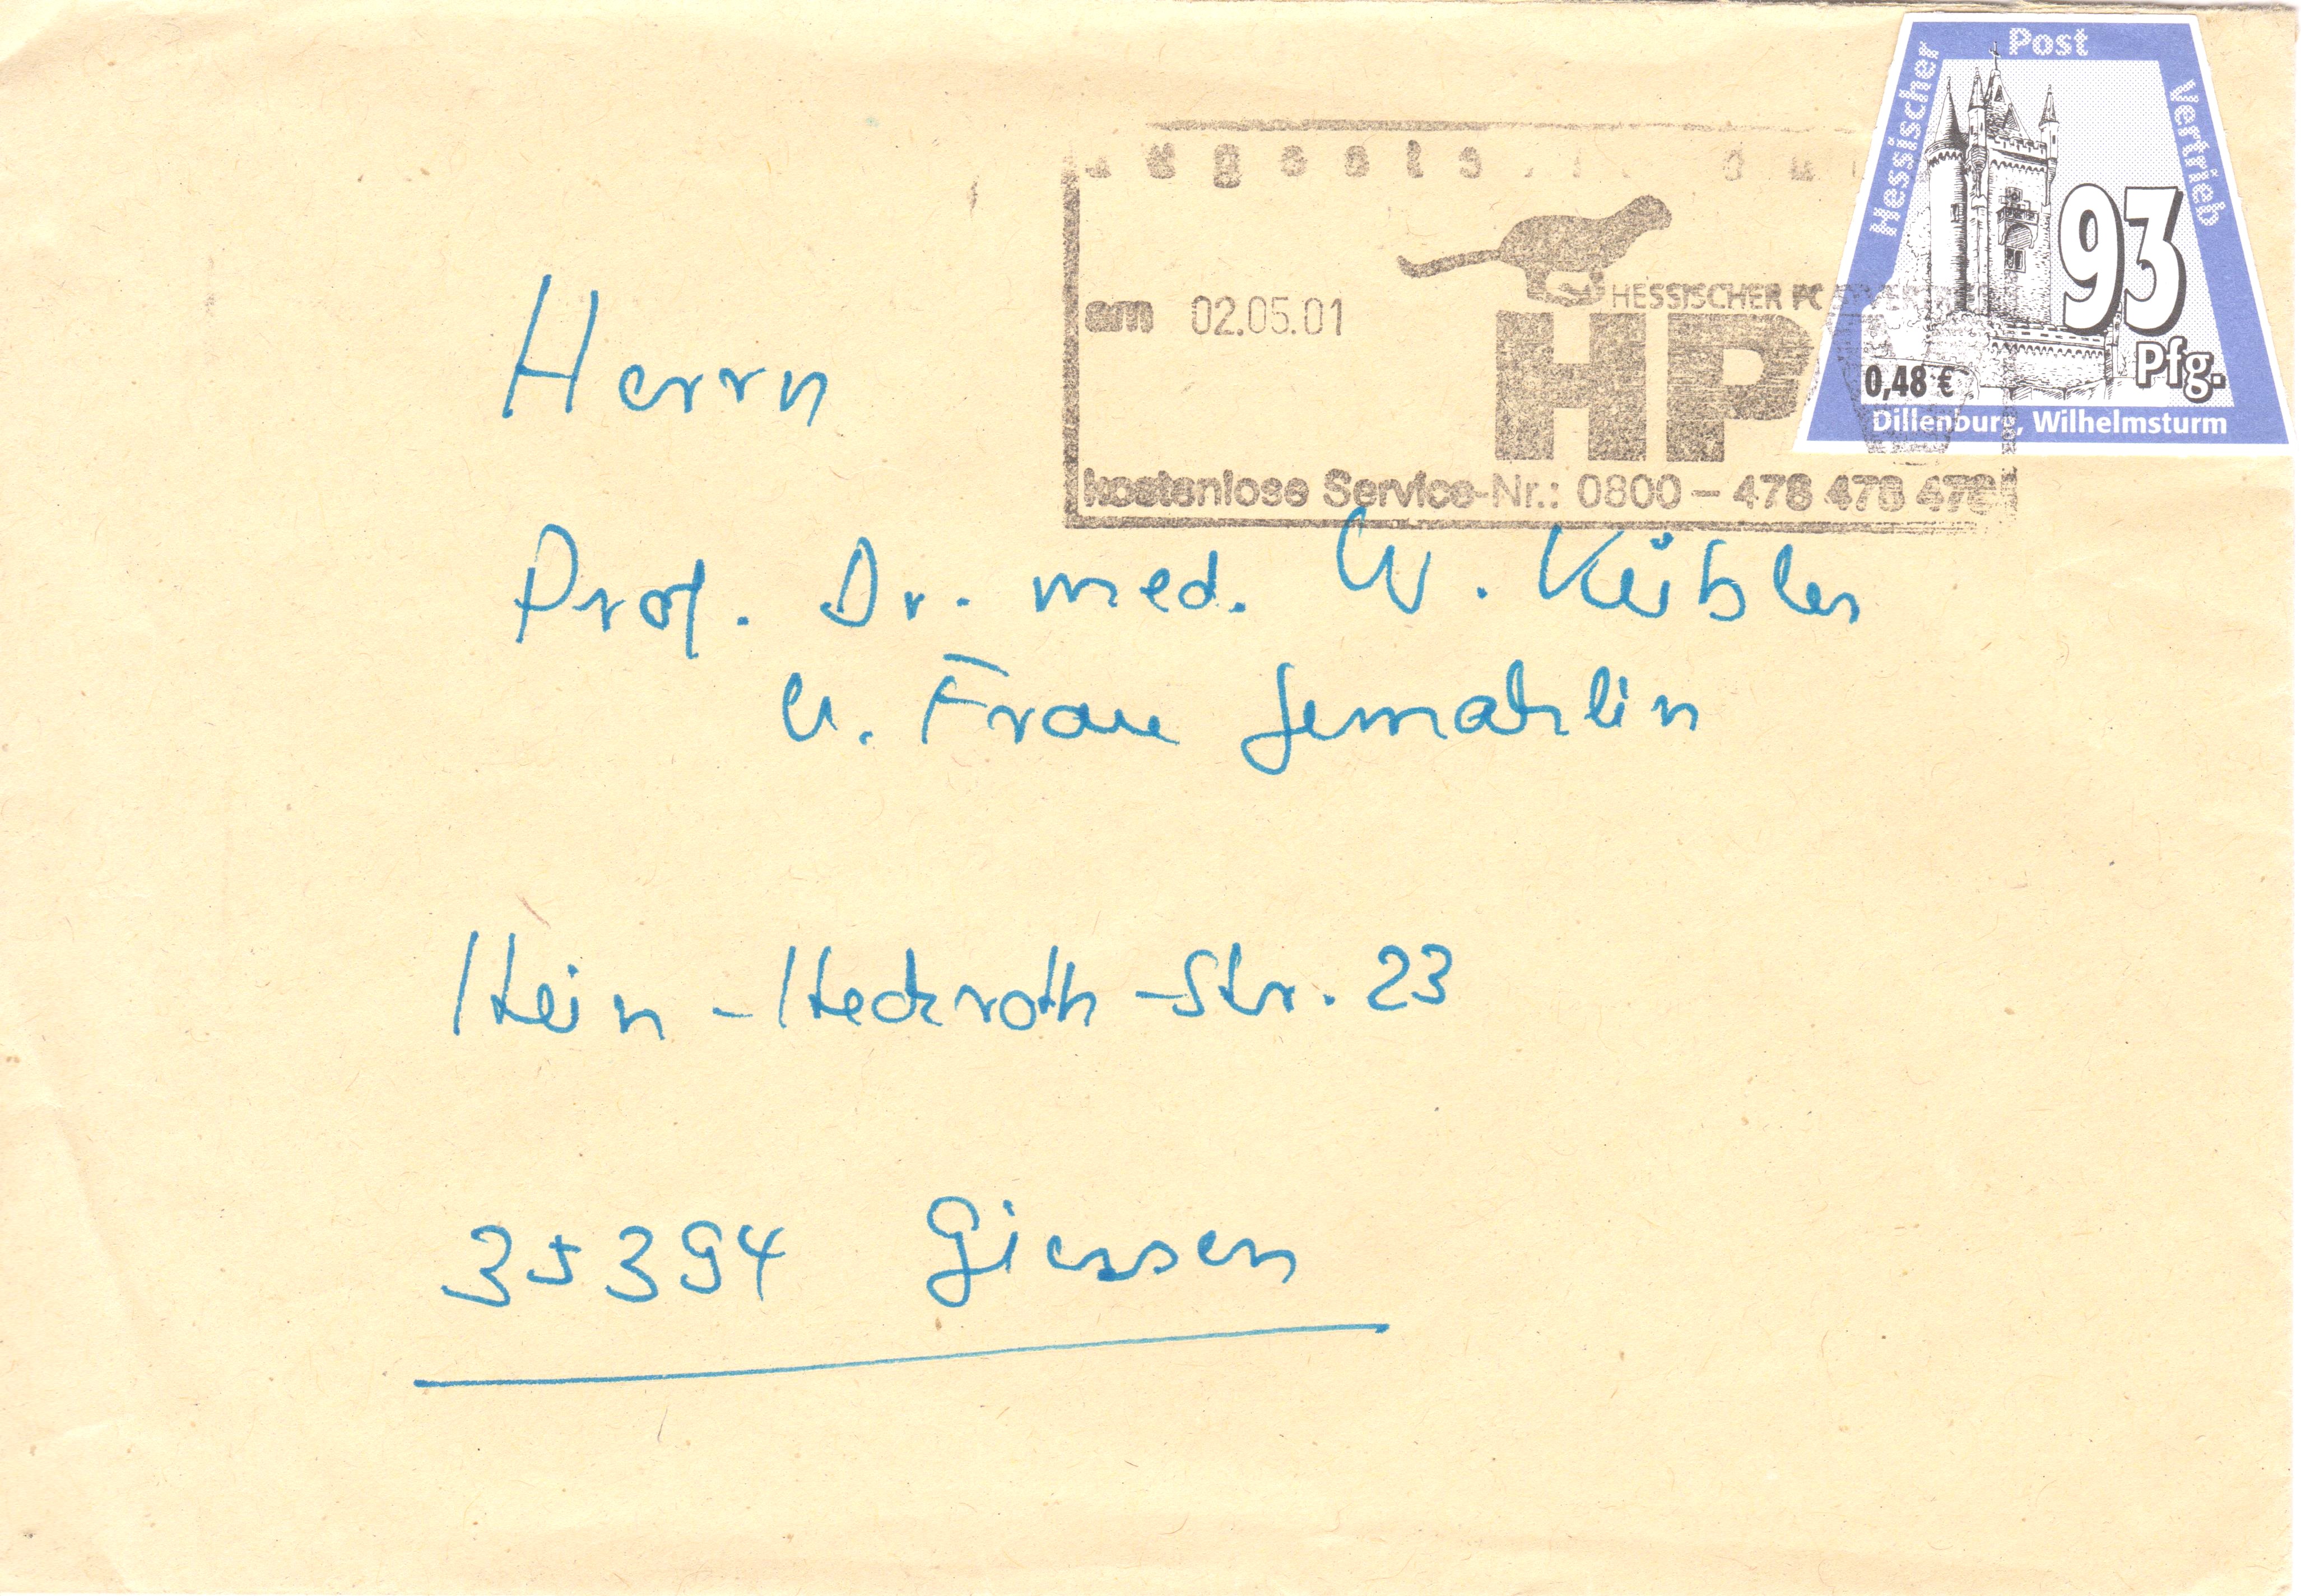 Hessischer Post Vertrieb
93
Pfg.
0,48 €
Dillenburg, Wilhelmsturm
HESSISCHER
am 02.05.01
HP
kostenlose Service-Nr.: 0800 – 478 478 478
Herrn
Prof. Dr. med. W. Kübler
u. Frau Gemahlin
Hein-Heckroth-Str. 23
35394 Giessen